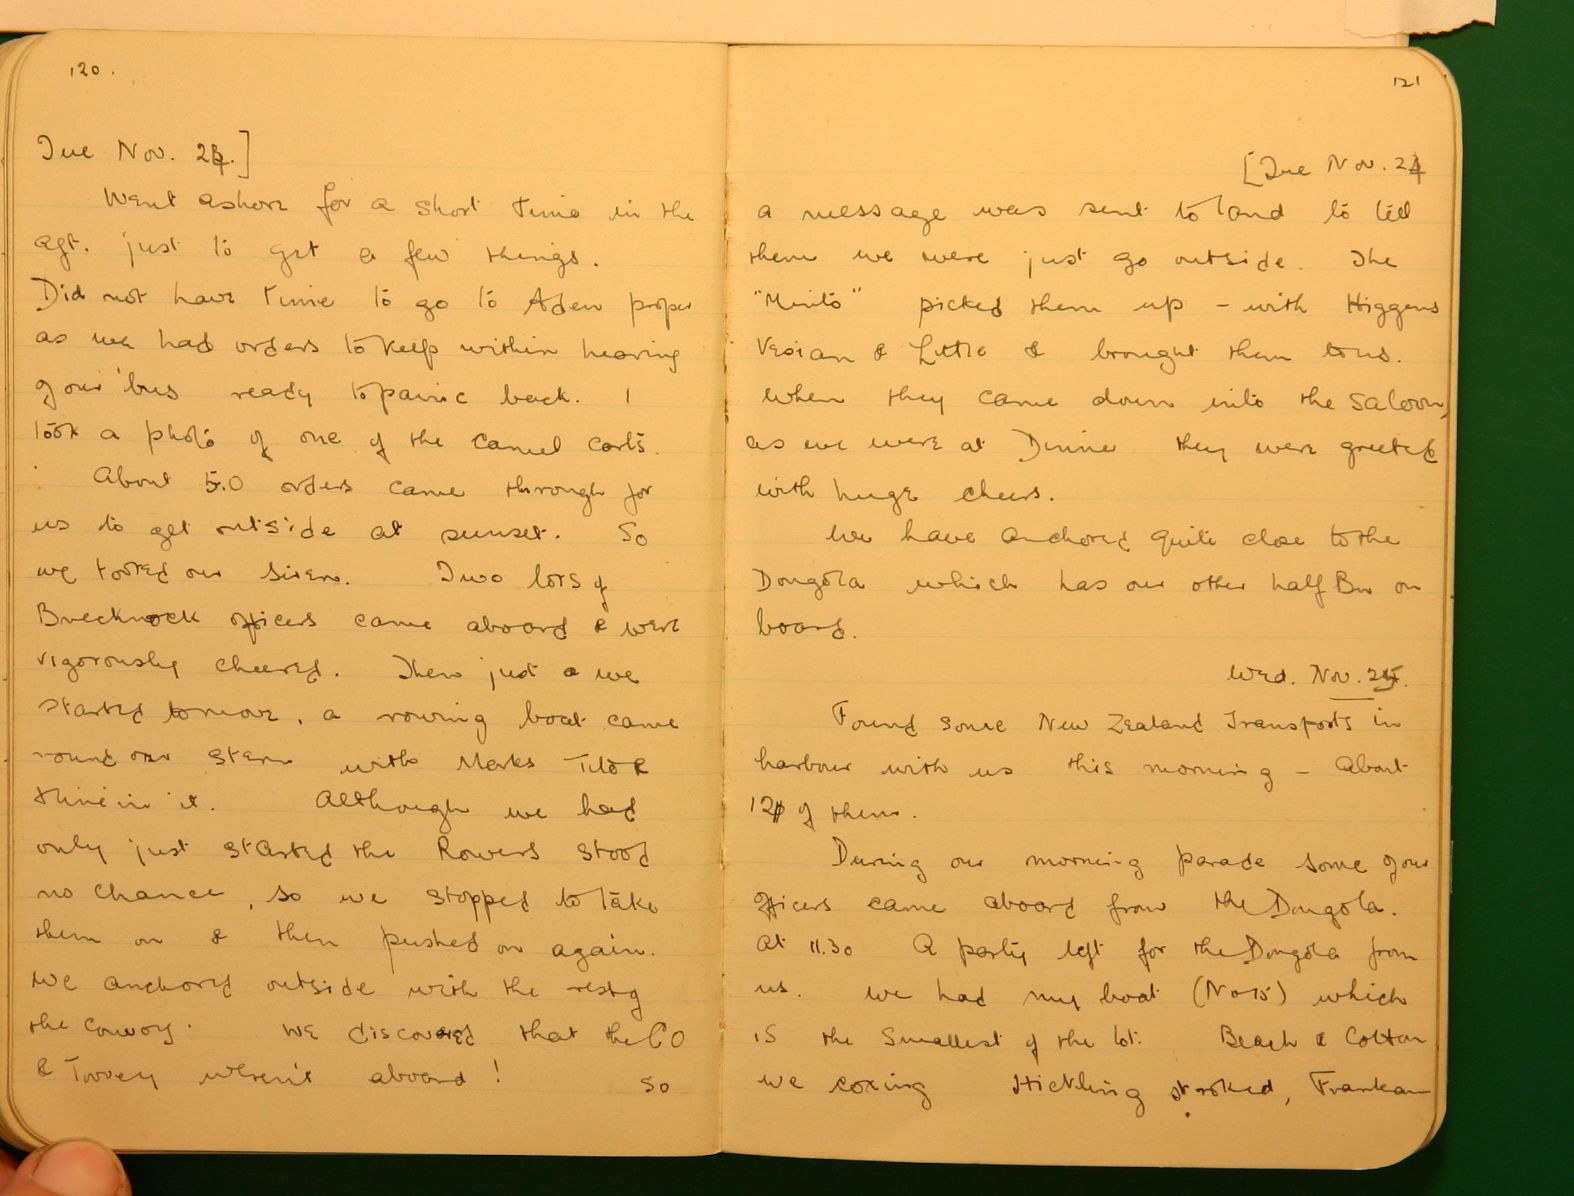 120.
Tue Nov. 24.]
Went ashore for a short time in the
aft. just to get a few things.
Did not have time to go to Aden proper
as we had orders to keep within hearing
of our 'bus ready to panic back. I
took a photo of one of the camel carts.
About 5.0 orders came through for
us to get outside at sunset. So
we tooted our siren. Two lots of
Brecknock officers came aboard & were
vigorously cheered. Then just a we
started to move, a rowing boat came
round our stern with Marks
in it. Although we had
only just started the Rowers stood
no chance, so we stopped to take
them on & then pushed on again.
We anchored outside with the rest of
the convoy. We discovered that the CO
& Tovey weren't aboard! So
121
[Tue Nov. 24
a message was sent to land to tell
them we were just go outside. The
"Minto" picked them up - with Higgens
Vesian & Little & brought them to us.
When they came down into the saloon,
as we were at Dinner they were greeted
with huge cheers.
We have anchored quite close to the
Dongola which has our other half Bn on
board.
Wed. Nov. 25.
Found some New Zealand Transports in
harbour with us this morning - About
12 of them.
During our morning parade some of our
officers came aboard from the Dongola.
At 11.30 a party left for the Dongola from
us. We had my boat (No 15) which
is the smallest of the lot. Beach & Cotton
we coxing Stickling stroked, Frankau